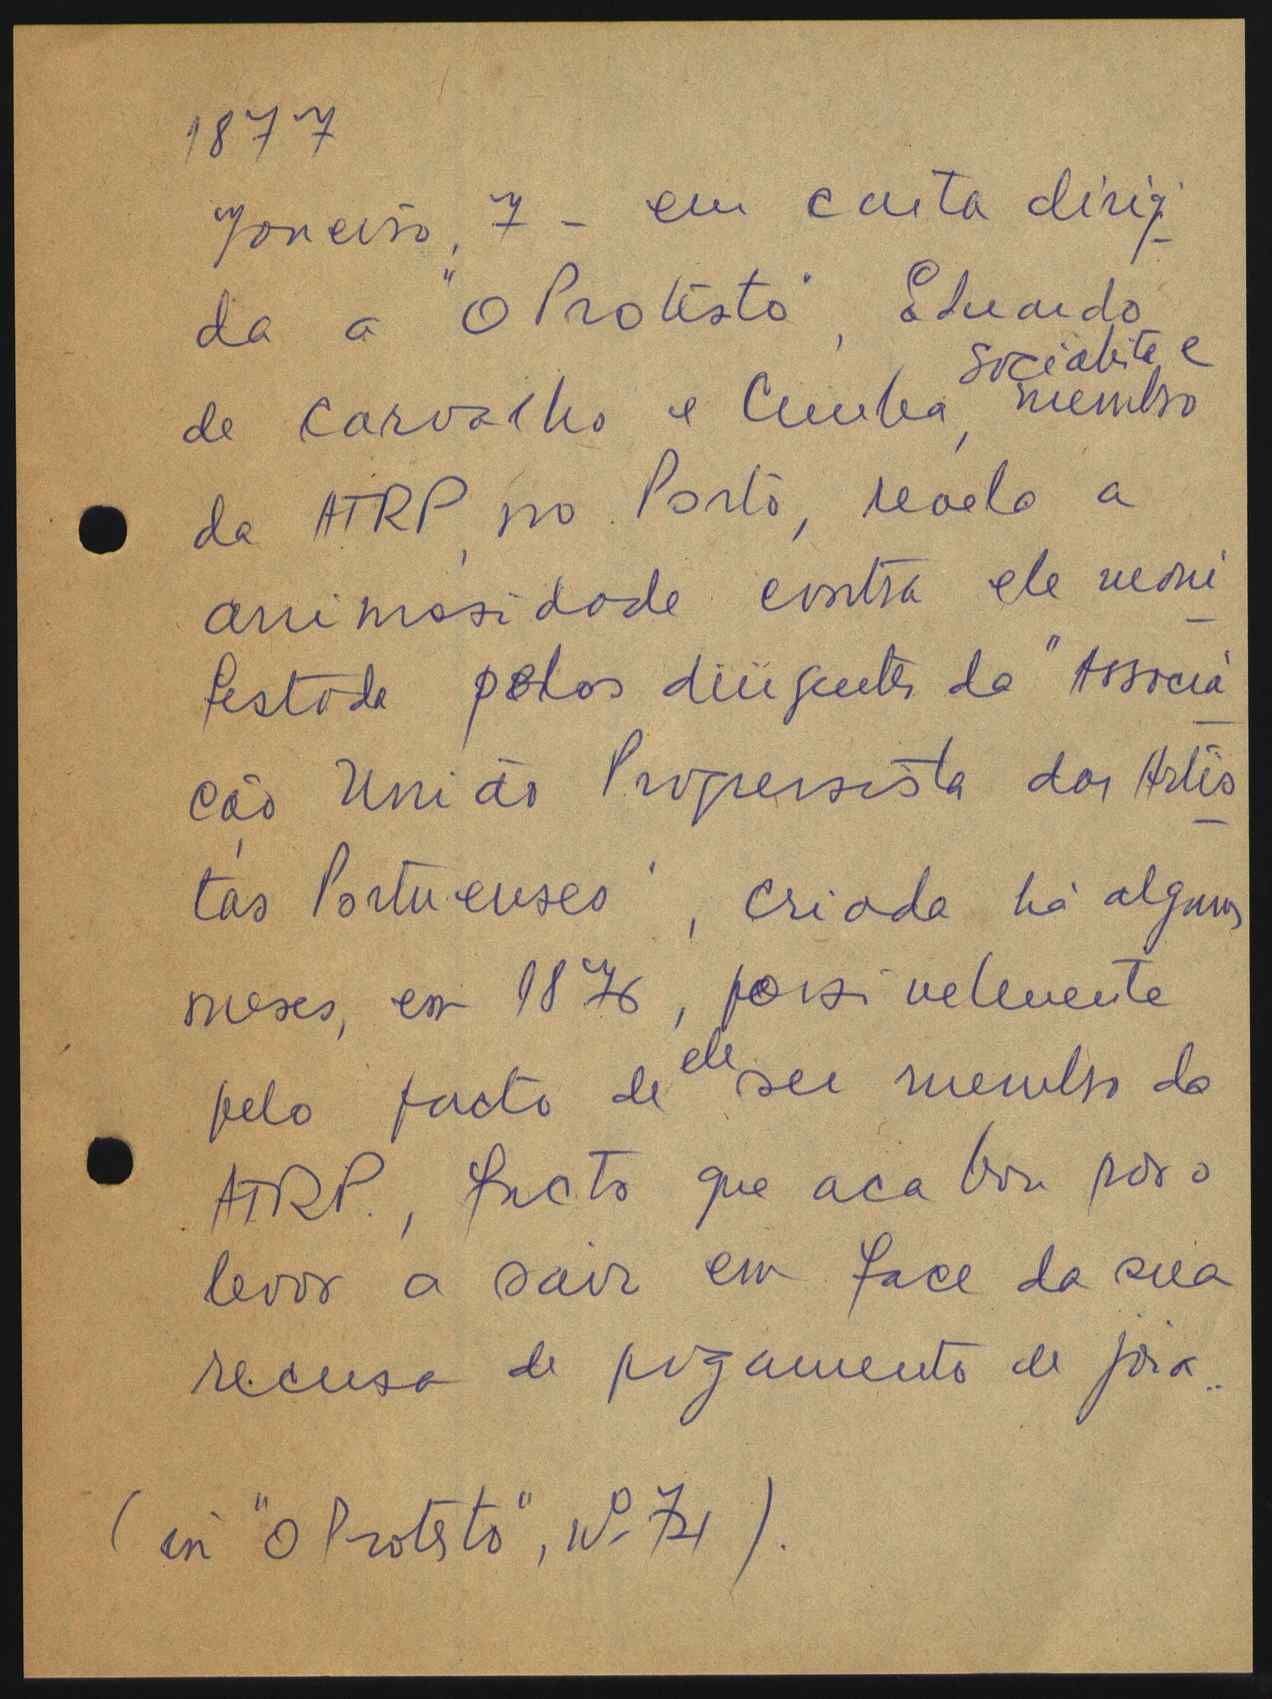 1877
Janeiro, 7 - em carta dirigi
da a "O Protesto", Eduardo
de Carvalho e Cunha, socialista e membro
da ATRP, no Porto, revela a
animosidade contra ele mani
festada pelos dirigentes da "Associa
ção União Progressista dos Artis
tas Portuenses", criada há alguns
meses, em 1876, possivelmente
pelo facto de ele ser membro da
ATRP., facto que acabou por o
levar a sair em face da sua
recusa de pagamento de jóia..
(in "O Protesto", Nº 74).